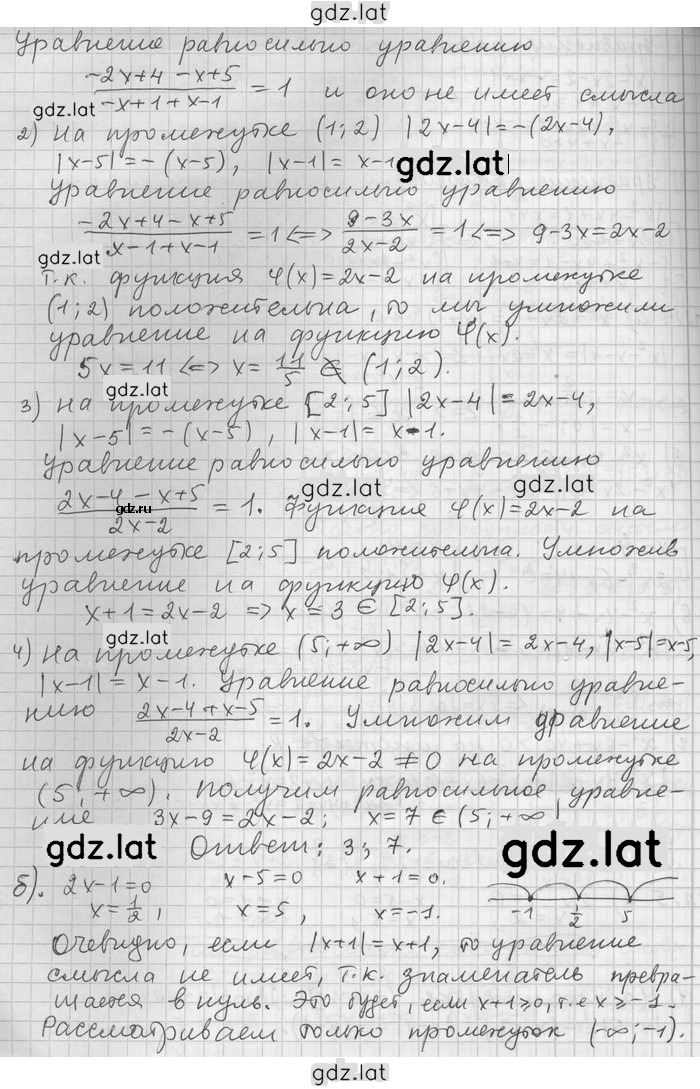 gdz.lat
Уравнение равносильно уравнению
(-2x+4-x+5)/(-x+1+x-1) = 1 и оно не имеет смысла
gdz.lat
2) На промежутке (1;2) |2x-4|=-(2x-4),
|x-5|=-(x-5), |x-1|= x-1
gdz.lat
Уравнение равносильно уравнению
(-2x+4-x+5)/(x-1+x-1) = 1 <=> (9-3x)/(2x-2) = 1 <=> 9-3x=2x-2
gdz.lat
т.к. функция φ(x)=2x-2 на промежутке
(1;2) положительна, то мы умножили
уравнение на функцию φ(x).
5x=11 <=> x= 11/5 ∉ (1;2).
gdz.lat
3) На промежутке [2;5] |2x-4|=2x-4,
|x-5|=-(x-5), |x-1|= x-1.
Уравнение равносильно уравнению
gdz.lat
gdz.lat
(2x-4-x+5)/(2x-2) = 1. Функция φ(x)=2x-2 на
gdz.ru
промежутке [2;5] положительна. Умножив
уравнение на функцию φ(x).
x+1=2x-2 => x=3 ∈ [2;5].
gdz.lat
4) На промежутке (5;+∞) |2x-4|= 2x-4, |x-5|=x-5,
|x-1|= x-1. Уравнение равносильно уравне-
нию (2x-4+x-5)/(2x-2) = 1. Умножим уравнение
на функцию φ(x)=2x-2 ≠0 на промежутке
(5;+∞). Получим равносильное уравне-
ние 3x-9=2x-2; x=7 ∈ (5;+∞
gdz.lat
Ответ: 3; 7.
gdz.lat
б). 2x-1=0 x-5=0 x+1=0.
x=1/2, x=5, x=-1.
-1 1/2 5
Очевидно, если |x+1|=x+1, то уравнение
смысла не имеет, т.к. знаменатель превра-
щается в нуль. Это будет, если x+1≥0, т.е x≥-1.
Рассматриваем только промежуток (-∞;-1).
gdz.lat